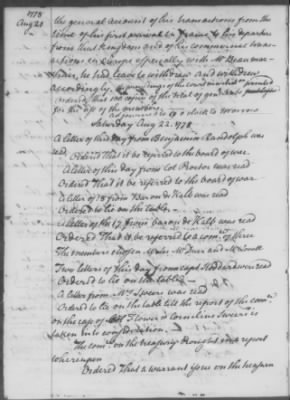 1778
Aug 21
the general account of his transactions from the
time of his first arrival in France to his departure
from that Kingdom and of his commercial trans-
actions in Europe especially with Mr Beaumar-
chais, he had leave to withdraw and withdrew
accordingly.
Ordered that
for the use of the members
adjourned to 9 o clock to morrow
Saturday Aug 22. 1778
A letter of this day from Benjamin Randolph was
read
Ordered That it be referred to the board of war.
A letter of this day from Col Proctor was read
Ordered That it be referred to the board of war
A letter of 18 from Baron de Kalb was read
Ordered to lie on the table
A letter of the 17 from Baron de Kalb was read
Ordered That it be referred to a comee of three
The members chosen
Two letters of this day from capt Stoddard were read
Ordered to lie on the table
A letter from Mrs Sweers was read
Ordered to lie on the table till the report of the comee
on the case of Col Flower & Cornelius Sweers is
taken into consideration
The comee on the treasury brought in a report
whereupon
Ordered That a warrant issue on the treasurer